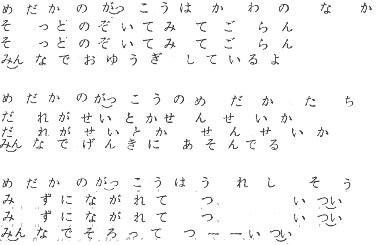 めだかのがっこうはかわのなか
そっとのぞいてみてごらん
そっとのぞいてみてごらん
みんなでおゆうぎしているよ
めだかのがっこうのめだかたち
だれがせいとかせんせいか
だれがせいとかせんせいか
みんなでげんきにあそんでる
めだかのがっこうはうれしそう
みずにながれてつ、いつい
みずにながれてつ、いつい
みんなでそろってつーーいつい